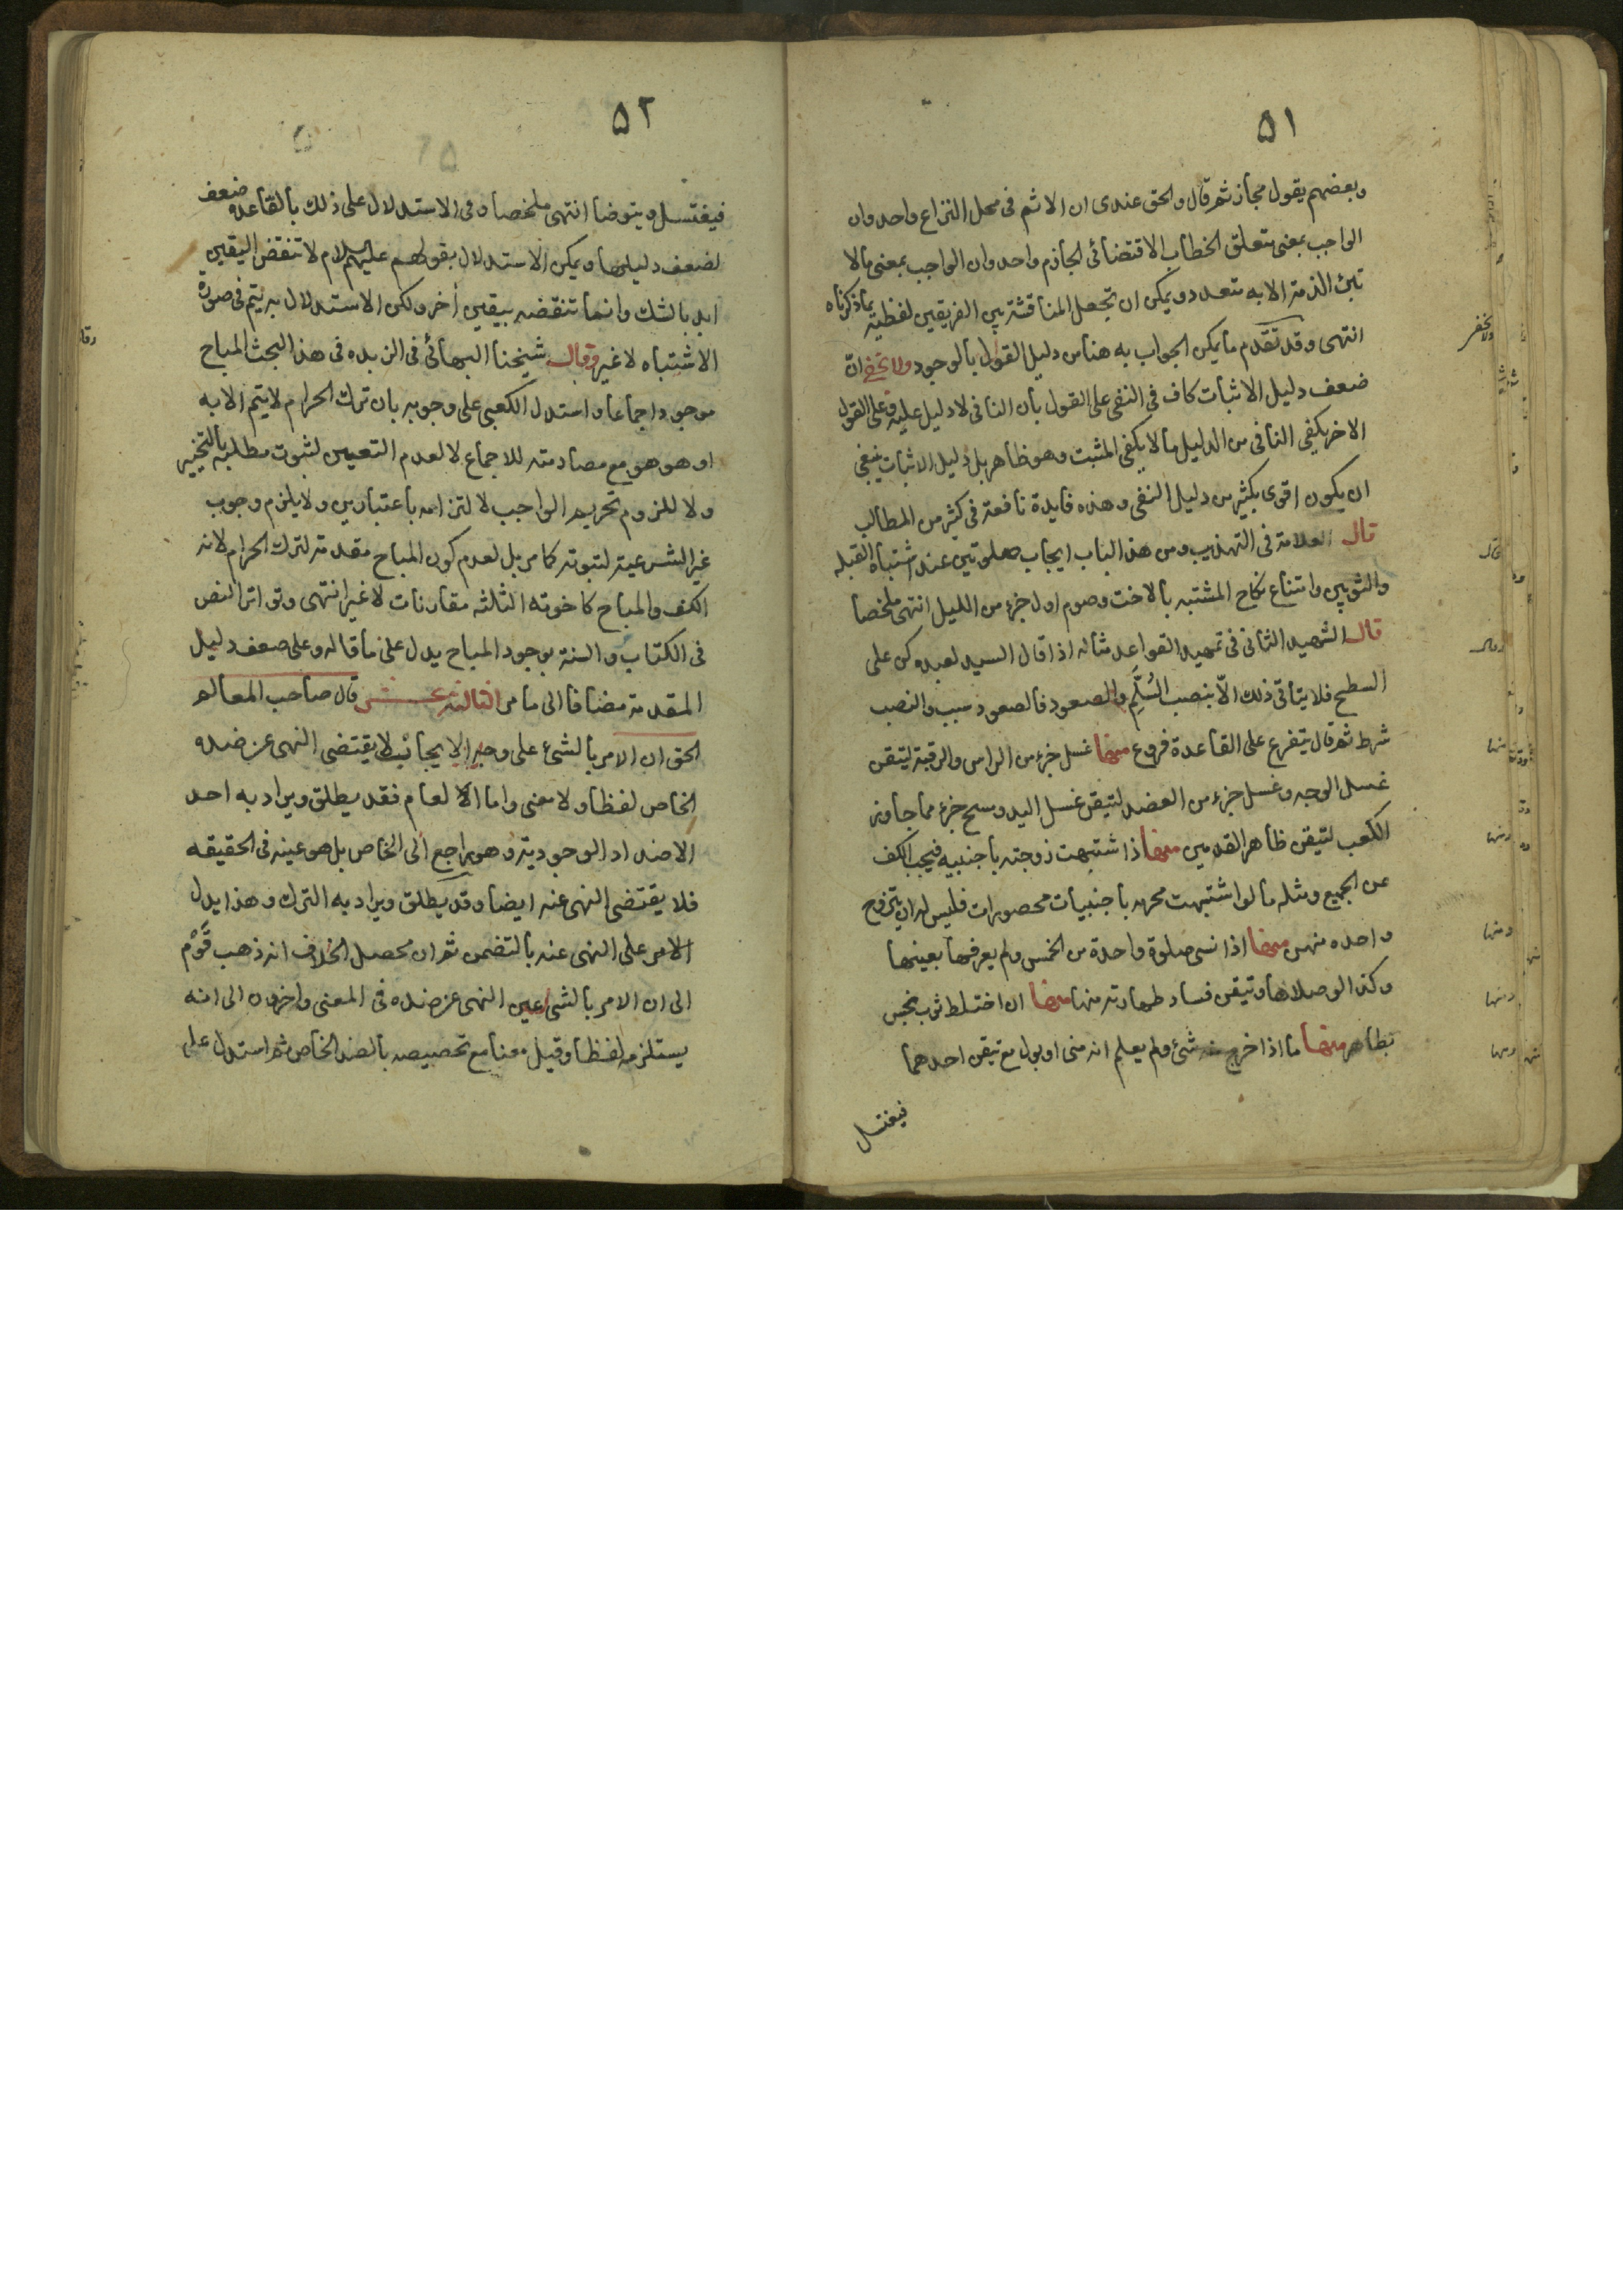 ٥١
وبعضهم يقول مجاز ثم قال والحق عندى ان الاثم فى محل النزاع واحد وان
الواجب بمعنى متعلق الخطاب الاقتضائى الجازم واحد وان الواجب بمعنى ما لا
تبرئ الذمة الا به متعدد ويمكن ان تجعل المناقشة بين الفريقين لفظية بما ذكرناه
انتهى وقد تقدم ما يمكن الجواب به هنا من دليل القول بالوجود ولا يخفى انّ
ضعف دليل الاثبات كاف فى النفى على القول بان النافى لا دليل عليه وعلى القول
الاخر يكفى النافى من الدليل ما لا يكفى المثبت وهو ظاهر بل دليل الاثبات ينبغى
ان يكون اقوى بكثير من دليل النفى وهذه فايدة نافعة فى كثير من المطالب
قال العلامة فى التهذيب ومن هذا الباب ايجاب صلوتين عند اشتباه القبله
والثوبين وامتناع نكاح المشتبه بالاخت وصوم اول جزء من الليل انتهى ملخصا
قال الشهيد الثانى فى تمهيد القواعد مثاله اذا قال السيد لعبده كن على
السطح فلا يتأتى ذلك الّا بنصب السُلَّمِ والصعود فالصعود سبب والنصب
شرط ثم قال يتفرع على القاعدة فروع منها غسل جزء من الراس والرقبة ليتقن
غسل الوجه وغسل جزء من العضد لتيقن غسل اليد ومسح جزء مما جاوز
الكعب لتيقن ظاهر القدمين منها اذا اشتبهت زوجته باجنبيه فيجب الكف
عن الجميع ومثله ما لو اشتبهت محرمه باجنبيات محصورات فليس له ان يتزوج
واحده منهن منها اذا نسى صلوة واحدة من الخمس ولم يعرفها بعينها
وكذا لو صلاها وتيقن فساد طهارته منها منها ان اختلط ثوب نجس
بطاهر منها ما اذا خرج منه شئ ولم يعلم انه منى او بول مع تيقن احدهما
فيغتسل
٥٢
فيغتسل ويتوضا انتهى ملخصا وفى الاستدلال على ذلك بالقاعده ضعف
لضعف دليلها ويمكن الاستدلال بقولهم عليهم السلام لا تنقض اليقين
ابدا بالشك وانما تنقضه بيقين أخر ولكن الاستدلال به يتم فى صورة
الاشتباه لا غير وقال شيخنا البهائى فى الزبده فى هذا البحث المباح
موجود اجماعا واستدل الكعبى على وجوبه بان ترك الحرام لا يتم الا به
او هو هو مع مصادمته للاجماع لا لعدم التعيين لثبوت مطلبه بالتخيير
ولا للزوم تحريم الواجب لالتزامه باعتبارين ولا يلزم وجوب
غير الشرعية لثبوته كما مر بل لعدم كون المباح مقدمة لترك الحرام لانه
الكف والمباح كاخوته الثلثه مقارنات لا غير انتهى وتواتر النص
فى الكتاب والسنة بوجود المباح يدل على ما قاله وعلى ضعف دليل
المقدمة مضافا الى ما مر الثالثة عشر قال صاحب المعالم
الحق ان الامر بالشئ على وجه الايجاب لا يقتضى النهى عن ضده
الخاص لفظا ولا معنى واما العام فقد يطلق ويراد به احد
الاضداد الوجودية وهو راجع الى الخاص بل هو عينه فى الحقيقه
فلا يقتضى النهى عنه ايضا وقد يطلق ويراد به الترك وهذا يدل
الامر على النهى عنه بالتضمن ثم ان محصل الخلاف انه ذهب قَوْم
الى ان الامر بالشئ عين النهى عن ضده فى المعنى واخرون الى انه
يستلزمه لفظا وقيل معنا مع تخصيصه بالضد الخاص ثم استدل على